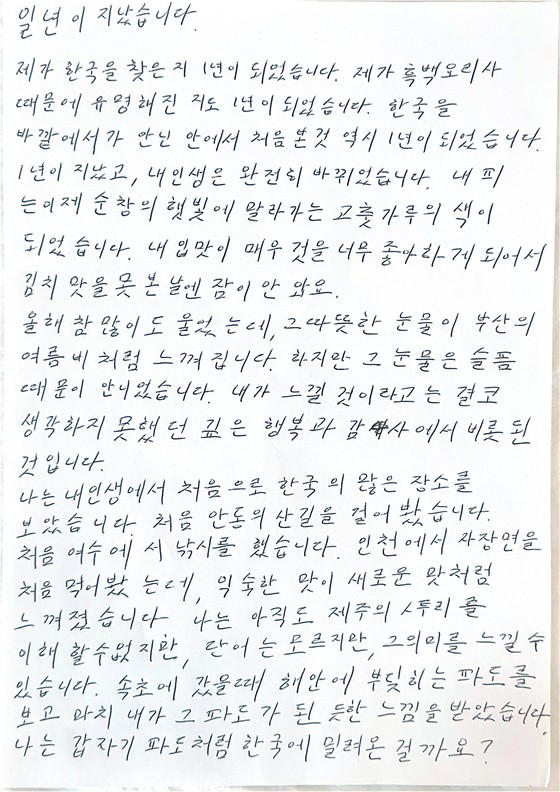 일년이 지났습니다.
제가 한국을 찾은 지 1년이 되었습니다. 제가 흑백요리사
때문에 유명해진 지도 1년이 되었습니다. 한국을
바깥에서가 안닌 안에서 처음 본것 역시 1년이 되었습니다.
1년이 지났고, 내인생은 완전히 바뀌었습니다. 내 피
는이제 순창의 햇빛에 말라가는 고춧가루의 색이
되었 습니다. 내 입맛이 매우 것을 너무 좋아하게 되어서
김치 맛을 못 본 날엔 잠이 안 와요.
올해 참 많이도 울었 는데, 그따뜻한 눈물이 부산의
여름 비처럼 느껴 집니다. 하지만 그 눈물은 슬픔
때문이 안니었습니다. 내가 느낄 것이라고는 결코
생각하지 못했던 깊은 행복과 감사에서 비롯된
것입니다.
나는 내인생에서 처음으로 한국의 많은 장소를
보았습니다. 처음 안동의 산길을 걸어 봤습니다.
처음 여수에 서 낚시를 했습니다. 인천에서 자장면을
처음 먹어봤 는데, 익숙한 맛이 새로운 맛처럼
느껴졌습니다 나는 아직도 제주의 사투리를
이해 할수없지만, 단어는 모르지만, 그의미를 느낄 수
있습니다. 속초에 갔을때 해안에 부딪히는 파도를
보고 마치 내가 그 파도가 된 듯한 느낌을 받았습니다.
나는 갑자기 파도처럼 한국에 밀려온 걸까요?